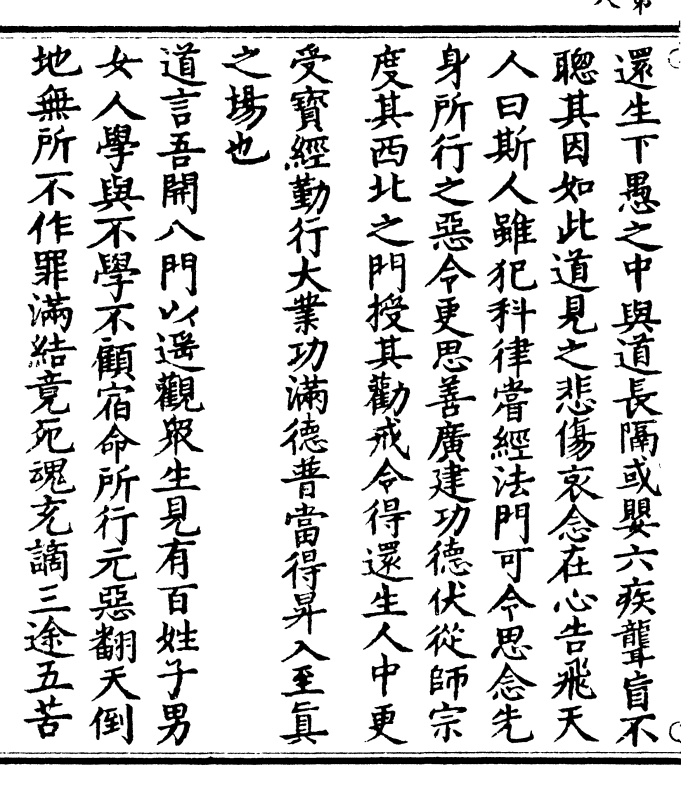 還生下愚之中與道長隔或嬰六疾聾盲不
聰其因如此道見之悲傷哀念在心告飛天
人曰斯人雖犯科律嘗經法門可令思念先
身所行之惡令更思善廣建功德伏從師宗
度其西北之門授其勸戒令得還生人中更
受寶經勤行大業功滿德普當得昇入至眞
之場也
道言吾開八門以遥觀衆生見有百姓子男
女人學與不學不顧宿命所行元惡翻天倒
地無所不作罪滿結竟死魂充謫三途五苦